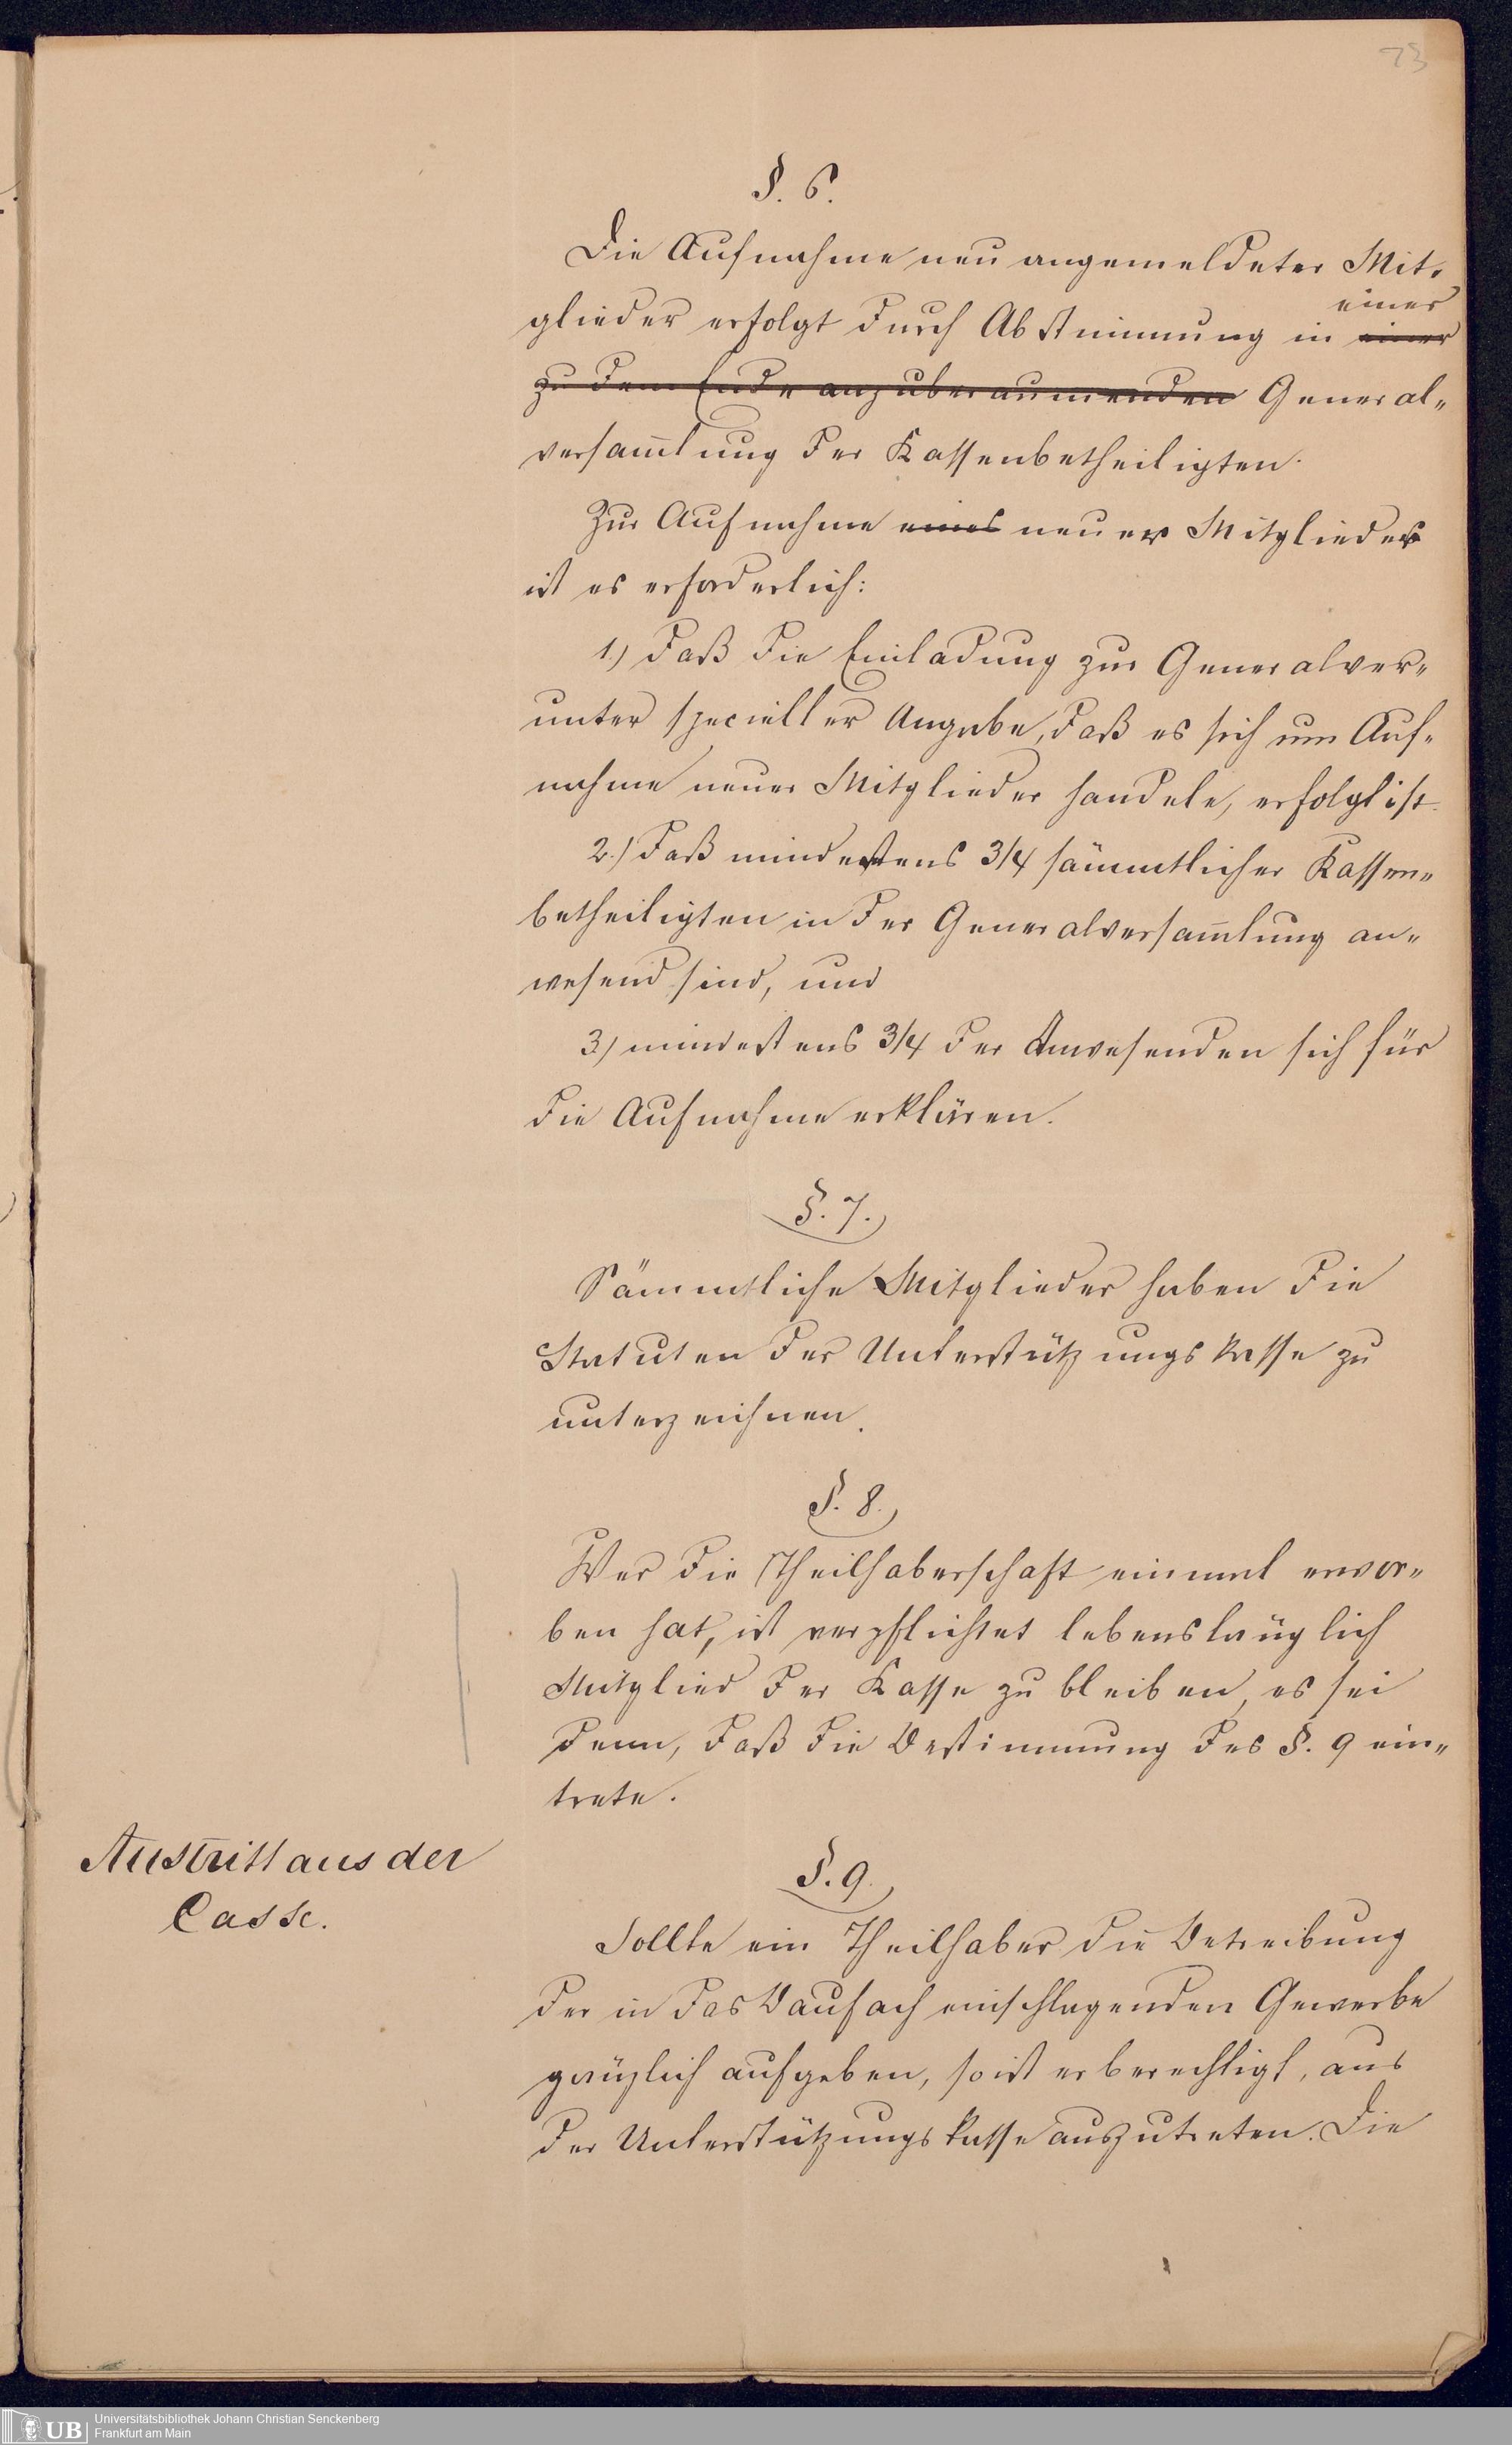 73
§. 6.
Die Aufnahme neu angemeldeter Mit-
einer
glieder erfolgt durch Abstimmung in einer
zu dem Ende anzuberaumenden General-
versam̄lung der Kassenbetheiligten.
Zur Aufnahme eines neuer Mitglieder
ist es erforderlich:
1.) daß die Einladung zur Generalver-
unter specieller Angabe, daß es sich um Auf-
nahme neuer Mitglieder handele, erfolgt ist.
2.) daß mindestens 3/4 sämmtlicher Kassen-
betheiligten in der Generalversam̄lung an-
wesend sind, und
3.) mindestens 3/4 der Anwesenden sich für
die Aufnahme erklären.
§. 7.
Sämmtliche Mitglieder haben die
Statuten der Unterstützungskasse zu
unterzeichnen.
§. 8.
Wer die Theilhaberschaft einmal erwor-
ben hat, ist verpflichtet lebenslänglich
Mitglied der Kasse zu bleiben, es sei
denn, daß die Bestimmung des §. 9 ein-
trete.
Austritt aus der
Casse.
§. 9.
Sollte ein Theilhaber die Betreibung
der in das Baufach einschlagenden Gewerbe
gänzlich aufgeben, so ist er berechtigt, aus
der Unterstützungskasse auszutreten. Die
UB
Universitätsbibliothek Johann Christian Senckenberg
Frankfurt am Main